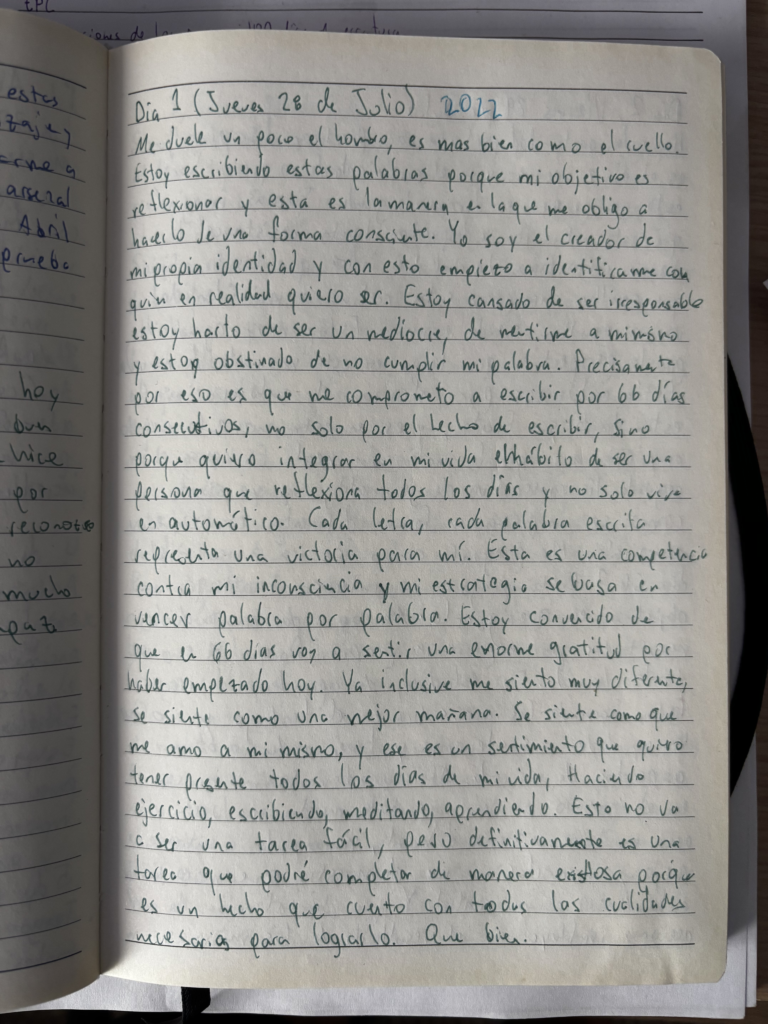 tPL
estas
zaje y
arme a
arsenal
Abril
prueba
hoy
buen
hice
por
reconozco
no
mucho
paz
Día 1 (Jueves 28 de Julio) 2022
Me duele un poco el hombro, es mas bien como el cuello.
Estoy escribiendo estas palabras porque mi objetivo es
reflexionar y esta es la manera en la que me obligo a
hacerlo de una forma consciente. Yo soy el creador de
mi propia identidad y con esto empiezo a identificarme con
quien en realidad quiero ser. Estoy cansado de ser irresponsable
estoy harto de ser un mediocre, de mentirme a mi mismo
y estoy obstinado de no cumplir mi palabra. Precisamente
por eso es que me comprometo a escribir por 66 días
consecutivos, no solo por el hecho de escribir, sino
porque quiero integrar en mi vida el hábito de ser una
persona que reflexiona todos los días y no solo vive
en automático. Cada letra, cada palabra escrita
representa una victoria para mí. Esta es una competencia
contra mi inconsciencia y mi estrategia se basa en
vencer palabra por palabra. Estoy convencido de
que en 66 dias voy a sentir una enorme gratitud por
haber empezado hoy. Ya inclusive me siento muy diferente,
se siente como una mejor mañana. Se siente como que
me amo a mi mismo, y ese es un sentimiento que quiero
tener presente todos los días de mi vida, Haciendo
ejercicio, escribiendo, meditando, aprendiendo. Esto no va
a ser una tarea fácil, pero definitivamente es una
tarea que podré completar de manera exitosa porque
es un hecho que cuento con todas las cualidades
necesarias para lograrlo. Que bien.